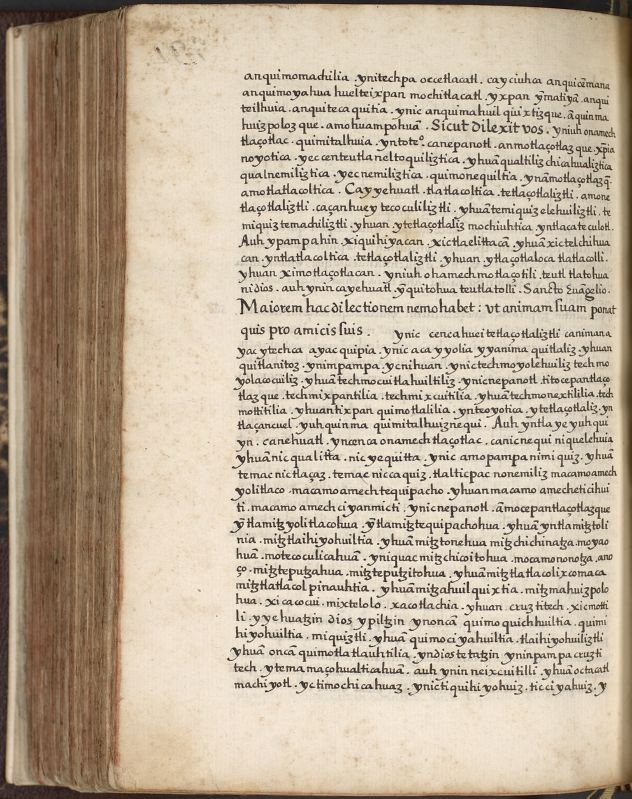 anquimomachilia .ynitechpa occetlacatl . cayciuhca anquicēmana
anquimoyahua huelteixpan mochitlacatl . yxpan ỹmatiyā .anqui
teilhuia . anquitecaquitia . ynic anquimahuilquixtizque . āquinma
huizpolozque . amohuampohuā . Sicut dilexit vos . yniuh onamech
tlaçotlac . quimitalhuia . yntoteº. canepanotl . anmotlaçotlazque . xp̄ia
noyotica . yeccenteutlaneltoquiliztica . yhuā qualtiliz chicahualiztica
qualnemiliztica . yecnemiliztica . quimonequiltia . ynāmotlaçotlazq̄.
amotlatlacoltica . Cayyehuatl . tlatlacoltica . tetlaçotlaliztli . amone
tlaçotlaliztli . caçanhuey tecoculiliztli . yhuā temiquizelehuiliztli . te
miquiztemachiliztli . yhuan ytetlaçotlaliz mochiuhtica yntlacateculotl.
Auh ypampahin xiquihiyacan . xictlaelittacā . yhuā xictelchihua
can . yntlatlacoltica . tetlaçotlaliztli . yhuan ytlaçotlaloca tlatlacolli .
yhuan ximotlaçotlacan . yniuh ohamechmotlaçotili . teutl tlatohua
ni dios . auh ynin cayehuatl . ỹquitohua teutlatolli . Sancto Euāgelio .
Maiorem hac dilectionem nemo habet : ut animam suam ponat
quis pro amicis suis . ynic cenca huei tetlaçotlaliztli canimana
yacytechca ayac quipia . ynic aca yyolia yyanima quitlaliz . yhuan
quitlanitoz . ynimpampa . ycnihuan . ynic techmoyolehuiliz techmo
yolacocuiliz . yhuā techmocuitlahuiltiliz . ynicnepanotl . titocepantlaço
tlazque . techmixpantilia . techmixcuitilia . yhuā techmonextililia . tech
mottitilia . yhuan tixpan quimotlalilia . ynteoyotica . ytetlaçotlaliz . yn
tlaçancuel . yuhquinma quimitalhuiznequi . Auh yntla yeyuhqui
yn . canehuatl . yncenca onamechtlaçotlac . canicnequi niquelehuia
yhuā nicqualitta . nicyequitta . ynic amopampa nimiquiz . yhuā
temac nictlaçaz . temac niccaquiz . tlalticpac nonemiliz macamo amech
yolitlaco . macamo amechtequipacho . yhuan macamo amechcticihui
ti . macamo amechciyanmicti . ynicnepanotl . āmocepantlaçotlazque
ỹtlamitzyolitlacohua . ỹtlamitztequipachohua . yhuā yntlamitztoli
nia . mitztlaihiyohuiltia . yhuā mitztonehua mitzchichinatza . moyao
huā . motecoculicahuā . yniquac mitzchicoitohua . mocamononotza . ano
ço . mitzteputzahua . mitzteputzitohua . yhuā mitztlatlacolixcomaca
mitztlatlacolpinauhtia . yhuā mitzahuilquixtia . mitzmahuizpolo
hua . xicacocui . mixtelolo . xacotlachia . yhuan . cruztitech . xicmotti
li . yyehuatzin dios ypiltzin ynoncā quimoquichhuiltia . quimi
hiyohuiltia . miquiztli . yhuā quimociyahuiltia . tlaihiyohuiliztli
yhuā oncā quimotlatlauhtilia . yndios tetatzin ynimpampa cruzti
tech . ytemamaçohualticahuā . auh ynin neixcuitilli . yhuā octacatl
machiyotl . yctimochicahuaz . ynictiquihiyohuiz . ticciyahuiz . y